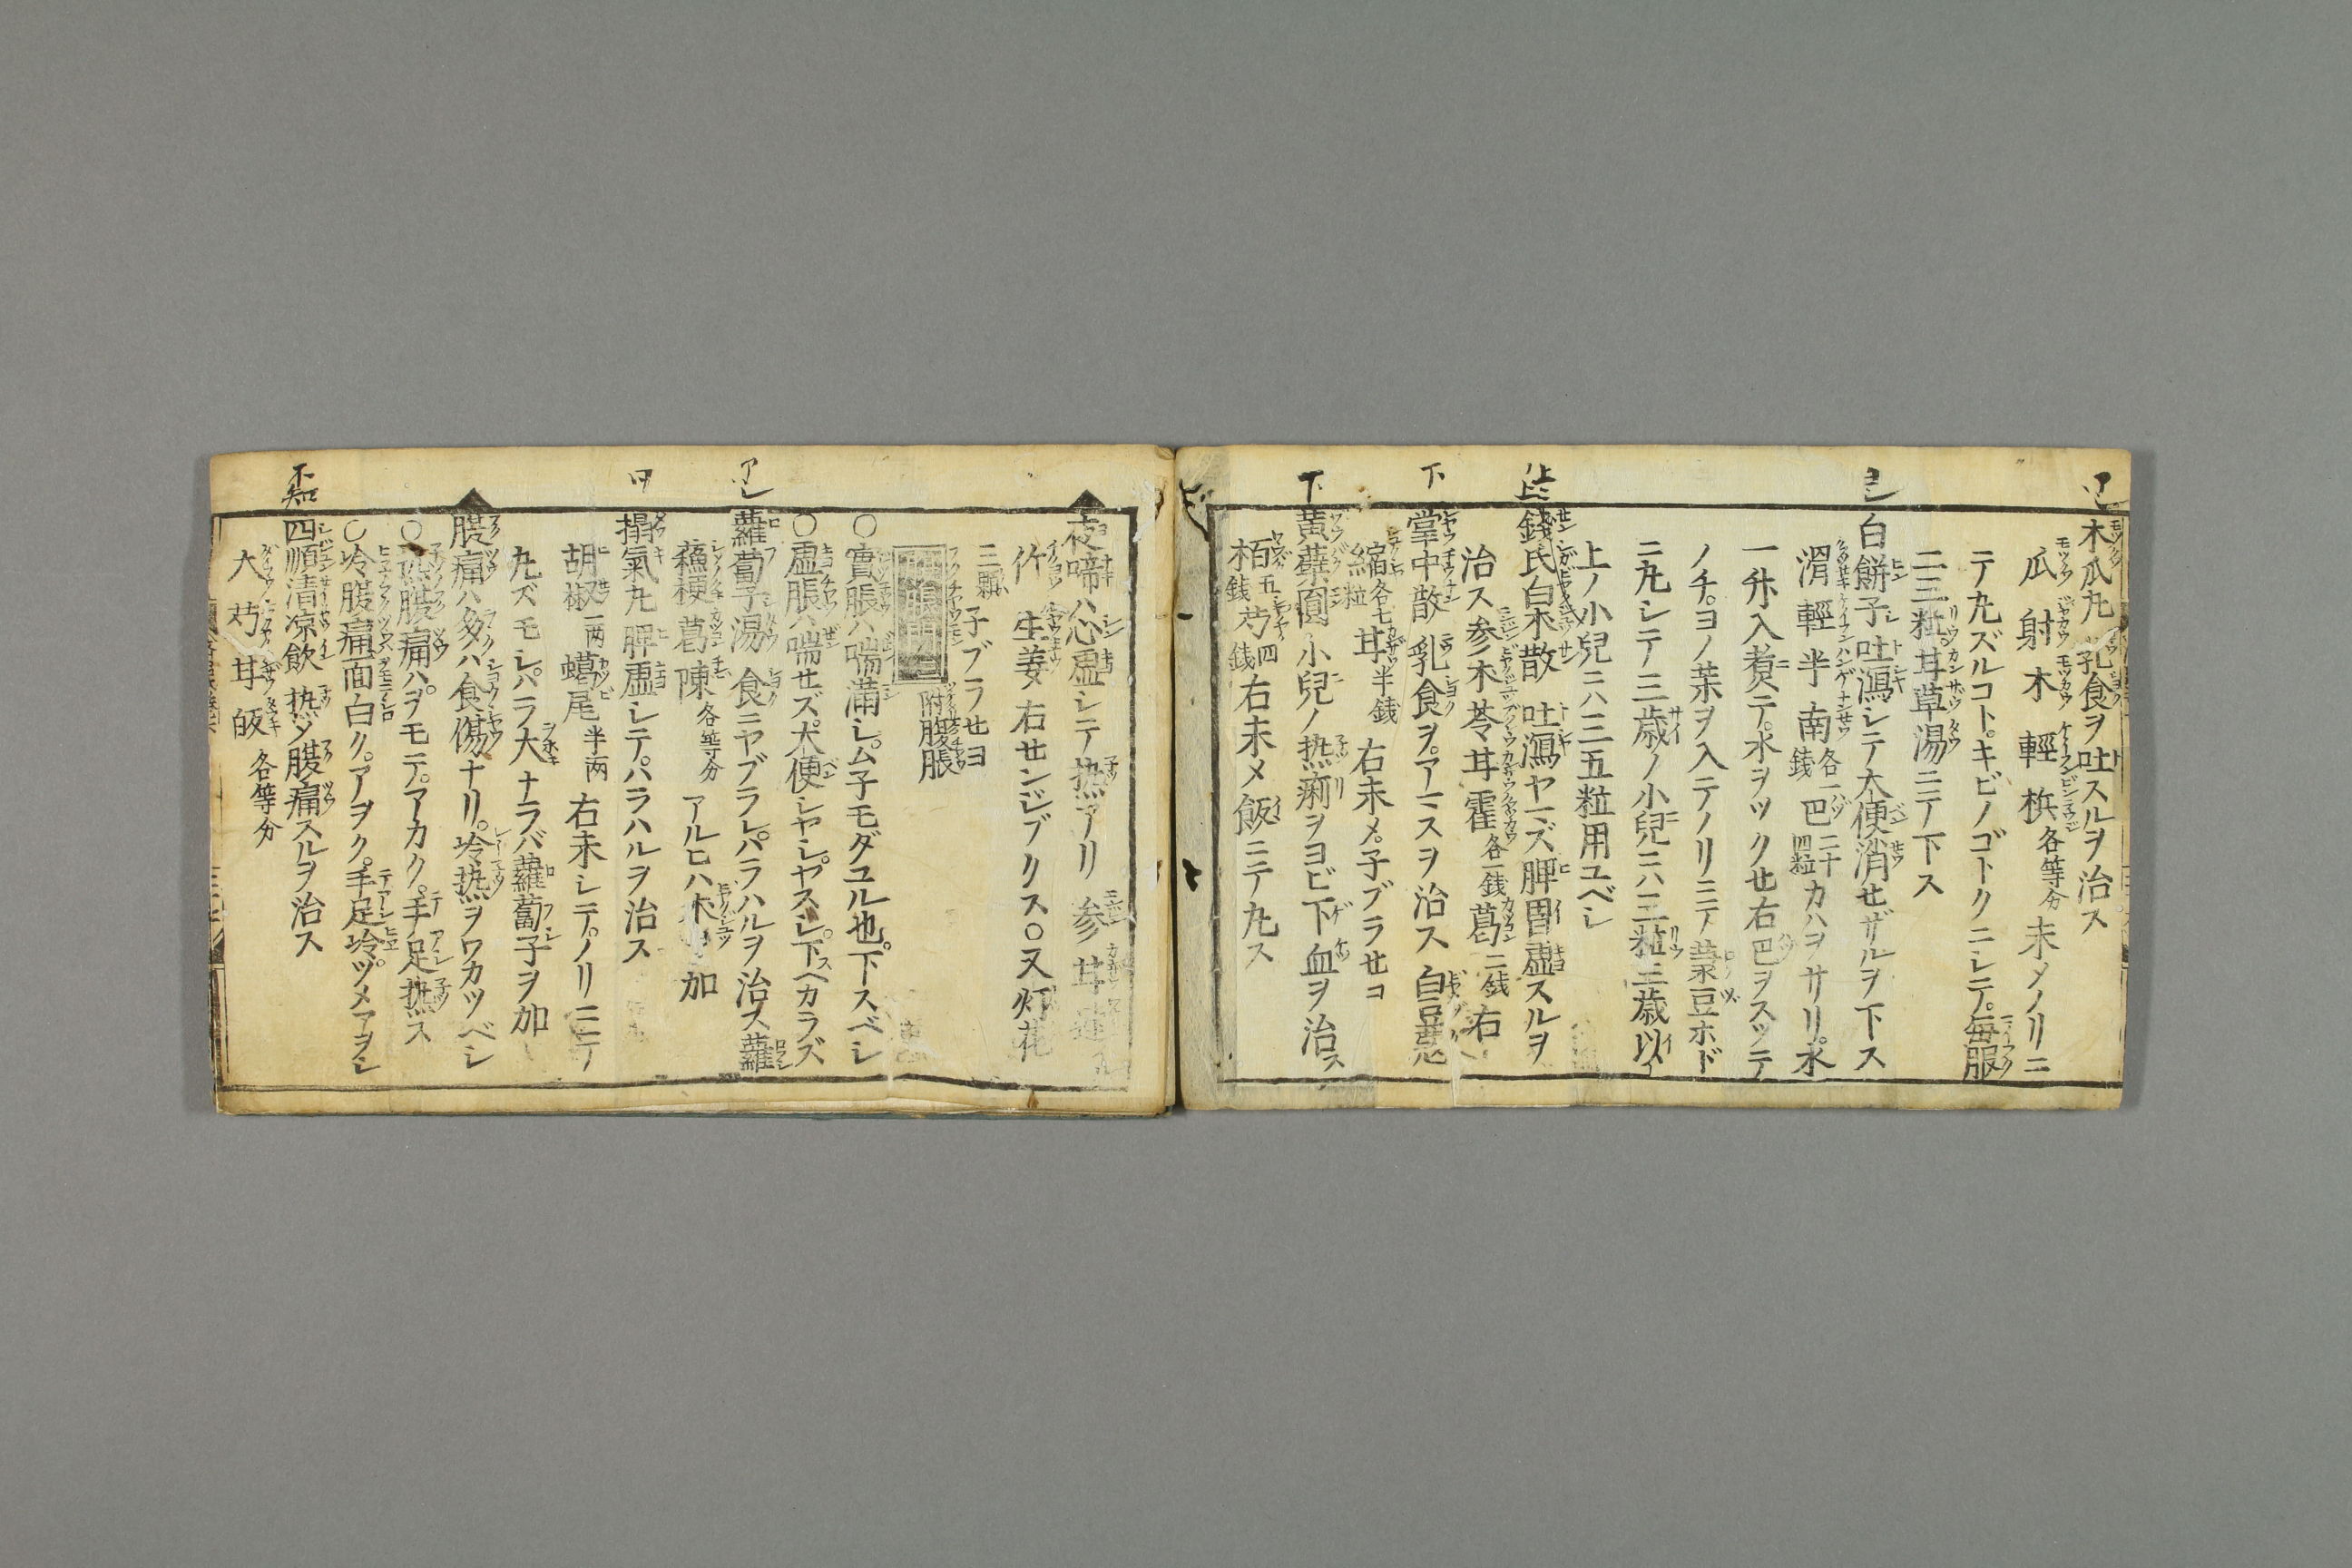 木瓜丸 乳食ヲ吐スルヲ治ス
瓜 射 木 輕 檳 各等分 末メノリニ
テ丸ズルコト。キビノゴトクニシテ。毎服
二三粒甘草湯ニテ下ス
白餅子 吐瀉シテ大便消セザルヲ下ス
滑 輕 半 南 各一銭 巴 二十四粒 カハヲサリ。水
一升入煮テ。水ヲツクセ右巴ヲスツテ
ノチ。ヨノ葉ヲ入テノリニテ菉豆ホド
ニ丸シテ三歳ノ小兒ニハ三粒三歳以
上ノ小兒ニハ三五粒用ユベシ
錢氏白朮散 吐瀉ヤマズ脾胃虚スルヲ
治ス参木苓甘霍 各一銭 葛 二銭 右
掌中散 乳食ヲ。アマスヲ治ス 白豆蔲
縮 各七粒 甘 半銭 右末メ。子ブラセヨ
黄蘗圓 小兒ノ热痢ヲヨビ下血ヲ治ス
栢 五銭 芍 四銭 右末メ飯ニテ丸ス
夜啼ハ心虚シテ热アリ 参 甘 連
竹 生姜 右センジブクス○又灯花
三顆 子ブラセヨ
附腹脹
○實脹ハ喘満シ。ム子モダユル也。下スベシ
○虚脹ハ喘セズ。大便シヤシヤスシ。下スベカラズ
蘿蔔子湯 食ニヤブラレ。ハラハルヲ治ス蘿
蘓梗葛陳 各等分 アルヒハ加
搨氣丸 脾虚シテ。ハラハルヲ治ス
胡椒 一两 蝎尾 半两 右末シテ。ノリニテ
丸ズモシ。ハラ大ナラバ蘿蔔子ヲ加
腹痛ハ多ハ食傷ナリ。冷热ヲワカツベシ
○热腹痛ハ。ヲモテ。アカク。手足热ス
○冷腹痛面白ク。アヲク。手足冷。ツメアヲシ
四順清凉飲 热メ腹痛スルヲ治ス
大 芍 甘 皈 各等分
下
下
不知